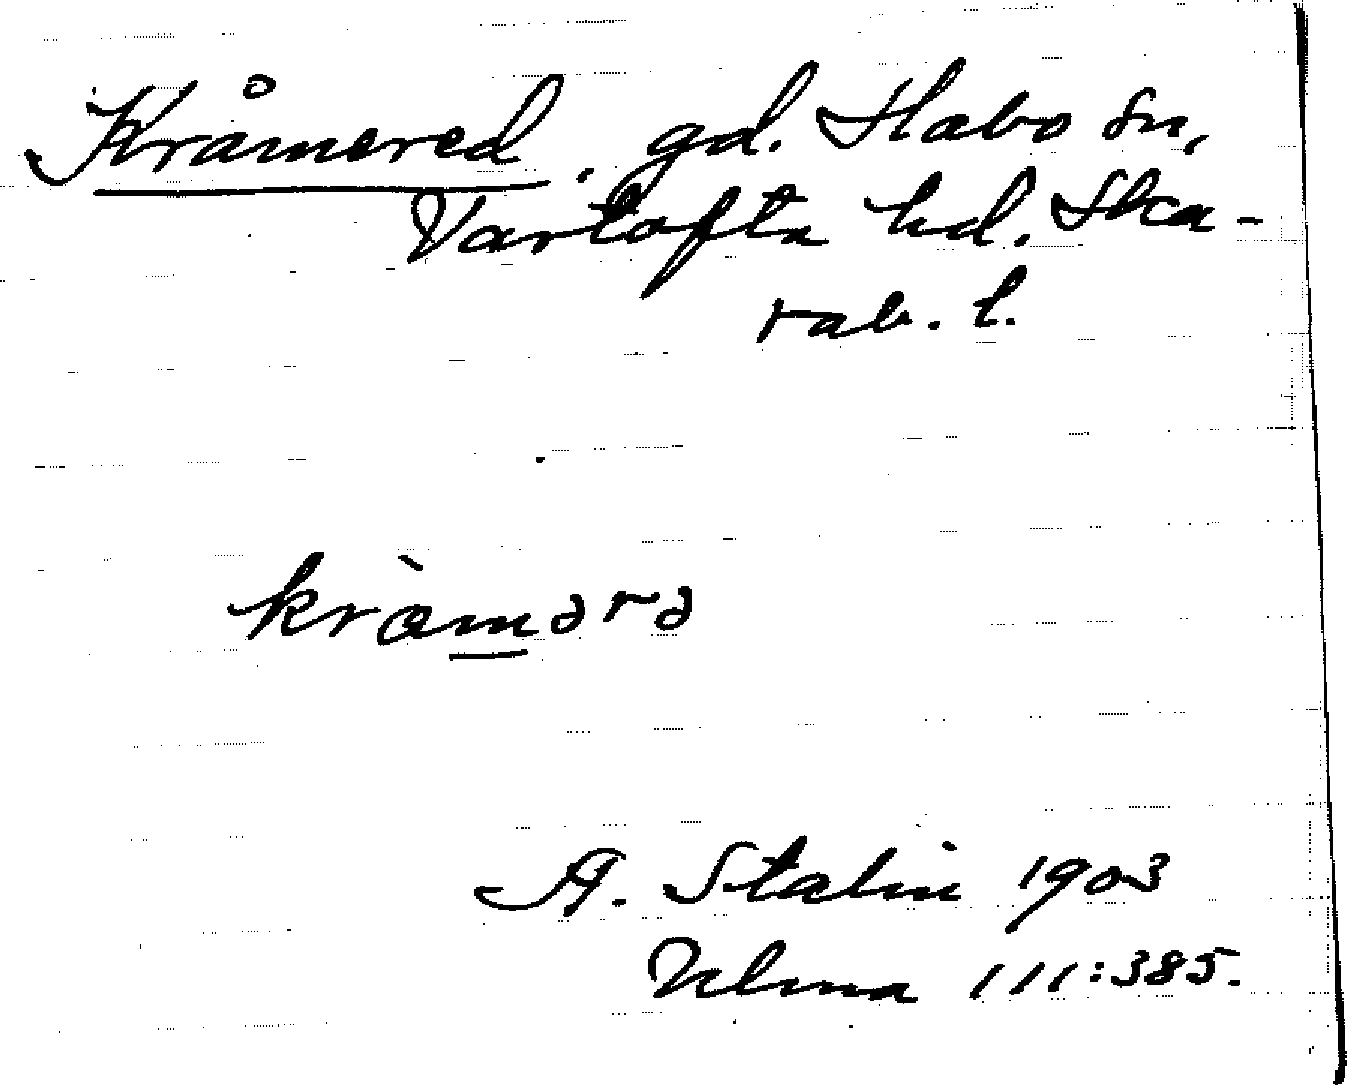 Kråmered, gd. Habo sn,
Vartofta hd. Ska-
rab. l.
kràmərə
A. Stalin 1903
Ulma 111:385.